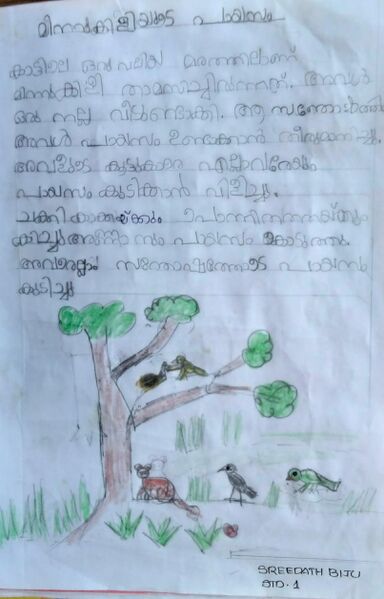 മിന്നുക്കിളിയുടെ പായസം
കാട്ടിലെ ഒരു വലിയ മരത്തിലാണ്
മിന്നുക്കിളി താമസിച്ചിരുന്നത്. അവൾ
ഒരു നല്ല വീടുണ്ടാക്കി. ആ സന്തോഷത്തിൽ
അവൾ പായസം ഉണ്ടാക്കാൻ തീരുമാനിച്ചു.
അവളുടെ കൂട്ടുകാരെ എല്ലാവരേയും
പായസം കുടിക്കാൻ വിളിച്ചു.
ചക്കി കാക്കയ്ക്കും
അണ്ണാനും പായസം കൊടുത്തു.
അവരെല്ലാം സന്തോഷത്തോടെ പായസം
കുടിച്ചു
SREEDATH BIJU
STD. 1